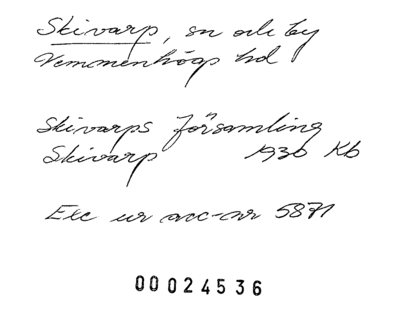 Skivarp, sn och by
Vemmenhögs hd
Skivarps församling
Skivarp 1930 Kb
Exc ur acc-nr 5871
00024536